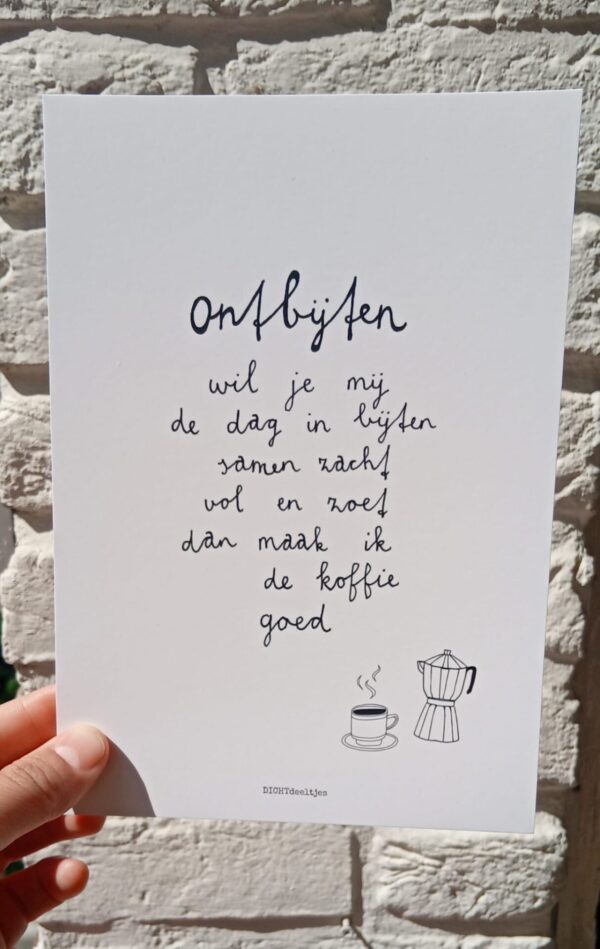 ontbijten
wil je mij
de dag in bijten
samen zacht
vol en zoet
dan maak ik
de koffie
goed
DICHTdeeltjes